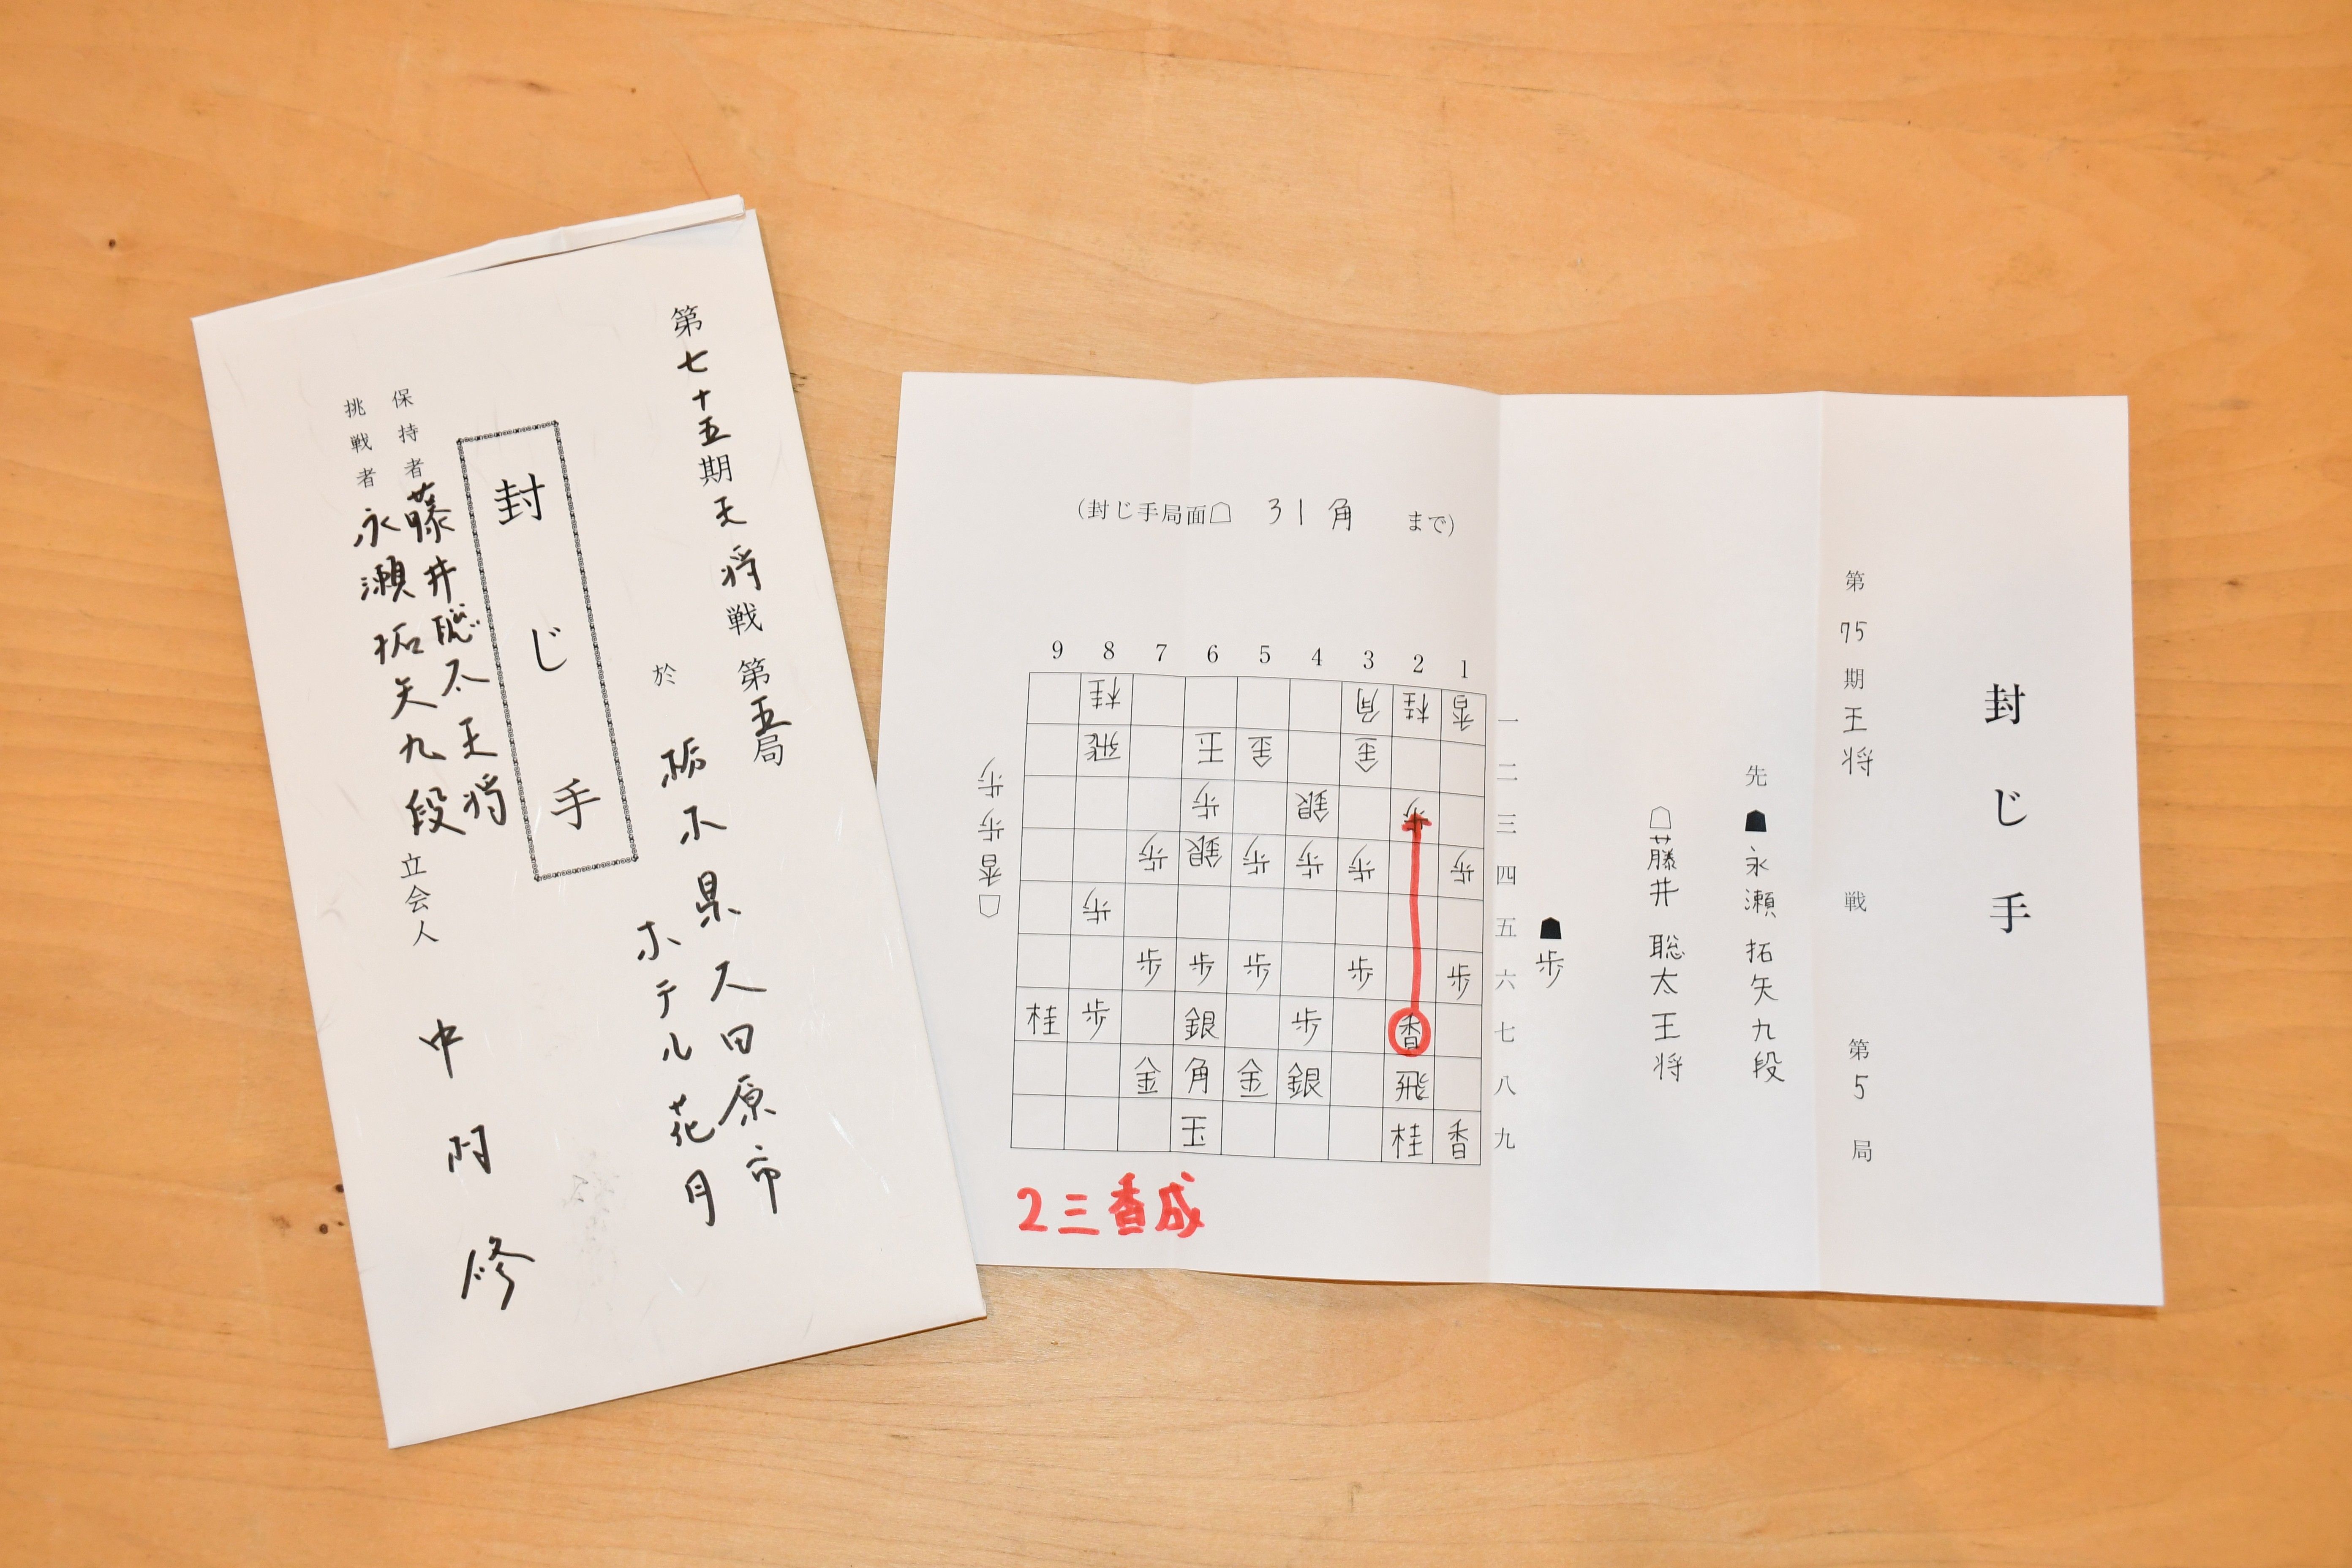 第七十五期王将戦 第五局
於 栃木県大田原市
ホテル花月
封じ手
保持者 藤井聡太王将
挑戦者 永瀬拓矢九段
立会人 中村修
封じ手
第75期王将戦 第5局
先 ☗永瀬拓矢九段
☖藤井聡太王将
(封じ手局面☖ 31角 まで)
9 8 7 6 5 4 3 2 1
桂 角 桂 香 一
飛 玉 金 金 二
歩 銀 歩 三
歩 銀 歩 歩 歩 歩 四
歩 五
歩 歩 歩 歩 歩 六
桂 歩 銀 歩 香 七
金 角 金 銀 飛 八
玉 桂 香 九
☗歩
☖香歩歩
2三香成